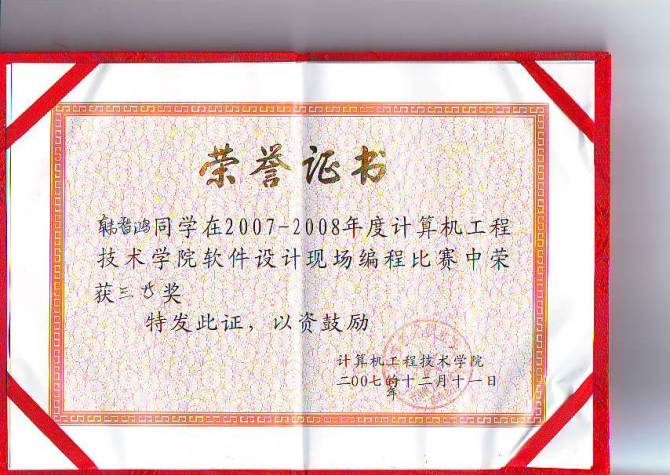 荣誉证书
同学在2007-2008年度计算机工程
技术学院软件设计现场编程比赛中荣
获三等奖
特发此证，以资鼓励
计算机工程技术学院
二00七年十二月十一日